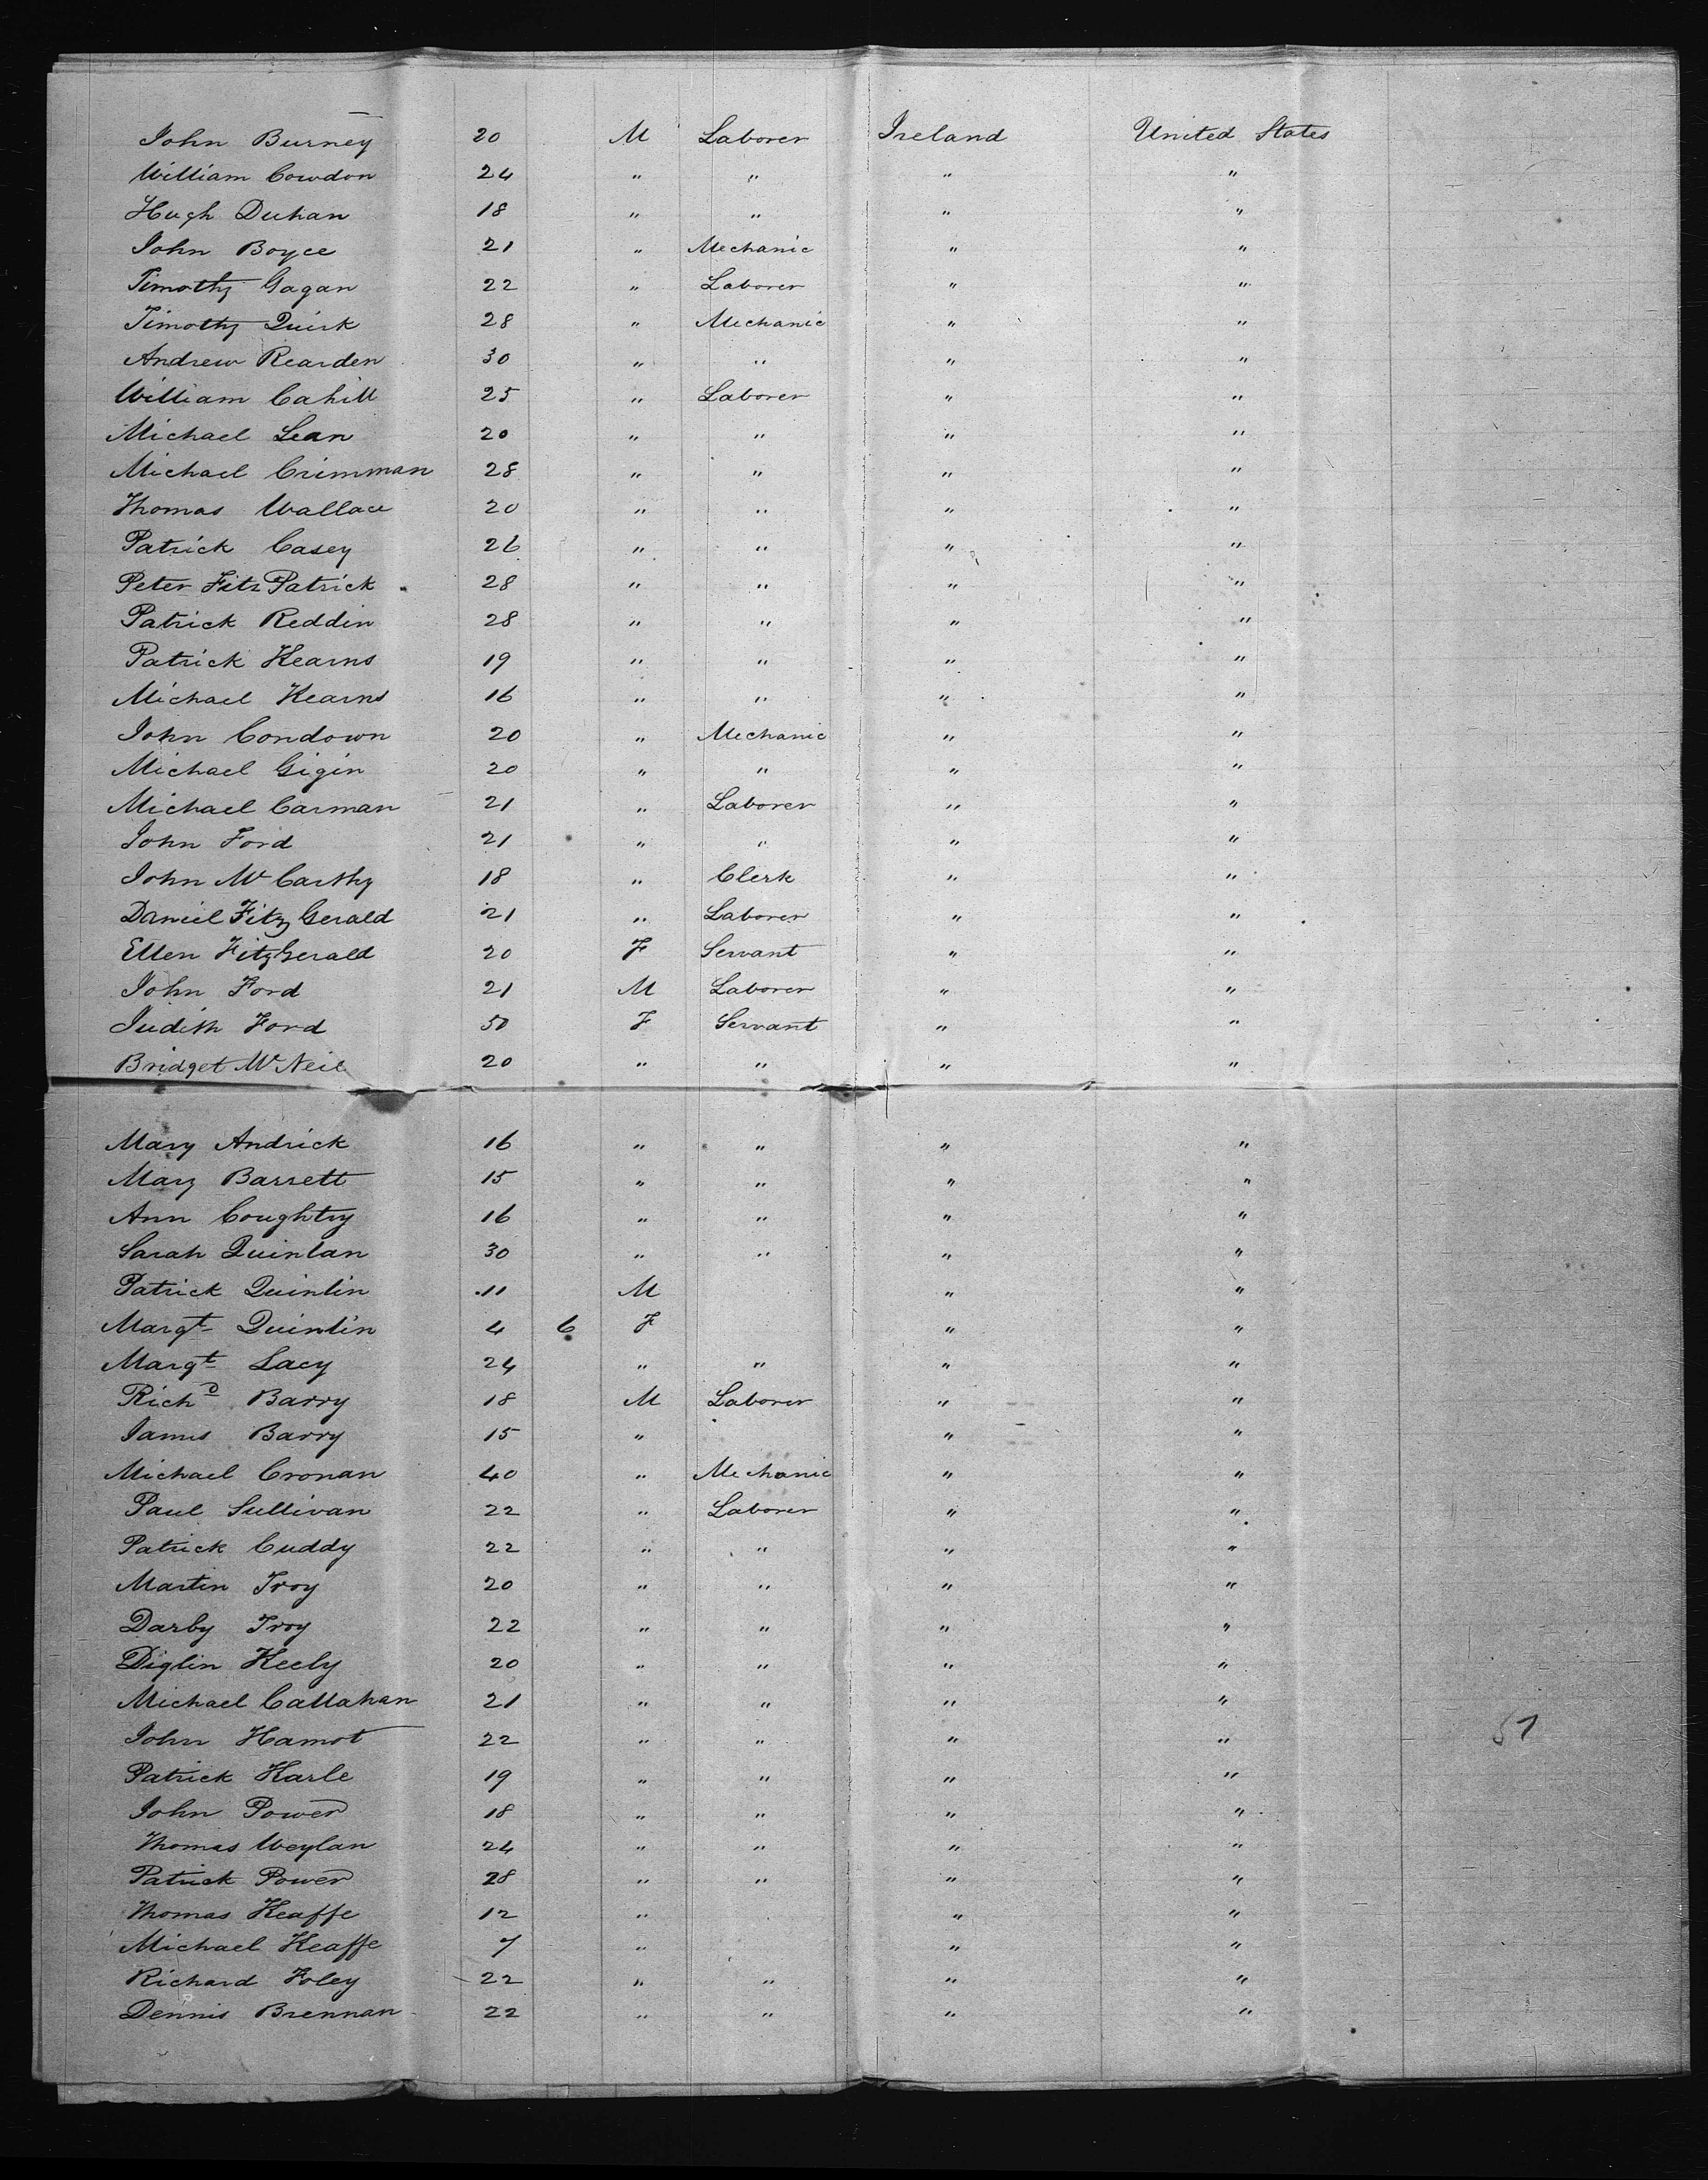 John Burney 20 M Laborer Ireland United States
William Cowdon 24 " " " "
Hugh Duhan 18 " " " "
John Boyce 21 " Mechanic " "
Timothy Gagan 22 " Laborer " "
Timothy Quirk 28 " Mechanic " "
Andrew Rearden 30 " " " "
William Cahill 25 " Laborer " "
Michael Lean 20 " " " "
Michael Crimman 28 " " " "
Thomas Wallace 20 " " " "
Patrick Casey 26 " " " "
Peter FitzPatrick 28 " " " "
Patrick Reddin 28 " " " "
Patrick Kearns 19 " " " "
Michael Kearns 16 " " " "
John Condown 20 " Mechanic " "
Michael Gigin 20 " " " "
Michael Carman 21 " Laborer " "
John Ford 21 " " " "
John McCarthy 18 " Clerk " "
Daniel FitzGerald 21 " Laborer " "
Ellen FitzGerald 20 F Servant " "
John Ford 21 M Laborer " "
Judith Ford 50 F Servant " "
Bridget McNeil 20 " " " "
Mary Andrick 16 " " " "
Mary Barrett 15 " " " "
Ann Coughtry 16 " " " "
Sarah Quinlan 30 " " " "
Patrick Quinlin 11 M " "
Margt Quinlin 4 6 F " "
Margt Lacy 24 " " " "
Richd Barry 18 M Laborer " "
James Barry 15 " " "
Michael Cronan 40 " Mechanic " "
Paul Sullivan 22 " Laborer " "
Patrick Cuddy 22 " " " "
Martin Troy 20 " " " "
Darby Troy 22 " " " "
Diglin Keely 20 " " " "
Michael Callahan 21 " " " "
John Hamot 22 " " " "
Patrick Karle 19 " " " "
John Power 18 " " " "
Thomas Weylan 24 " " " "
Patrick Power 28 " " " "
Thomas Keaffe 12 " " "
Michael Keaffe 7 " " "
Richard Foley 22 " " " "
Dennis Brennan 22 " " " "